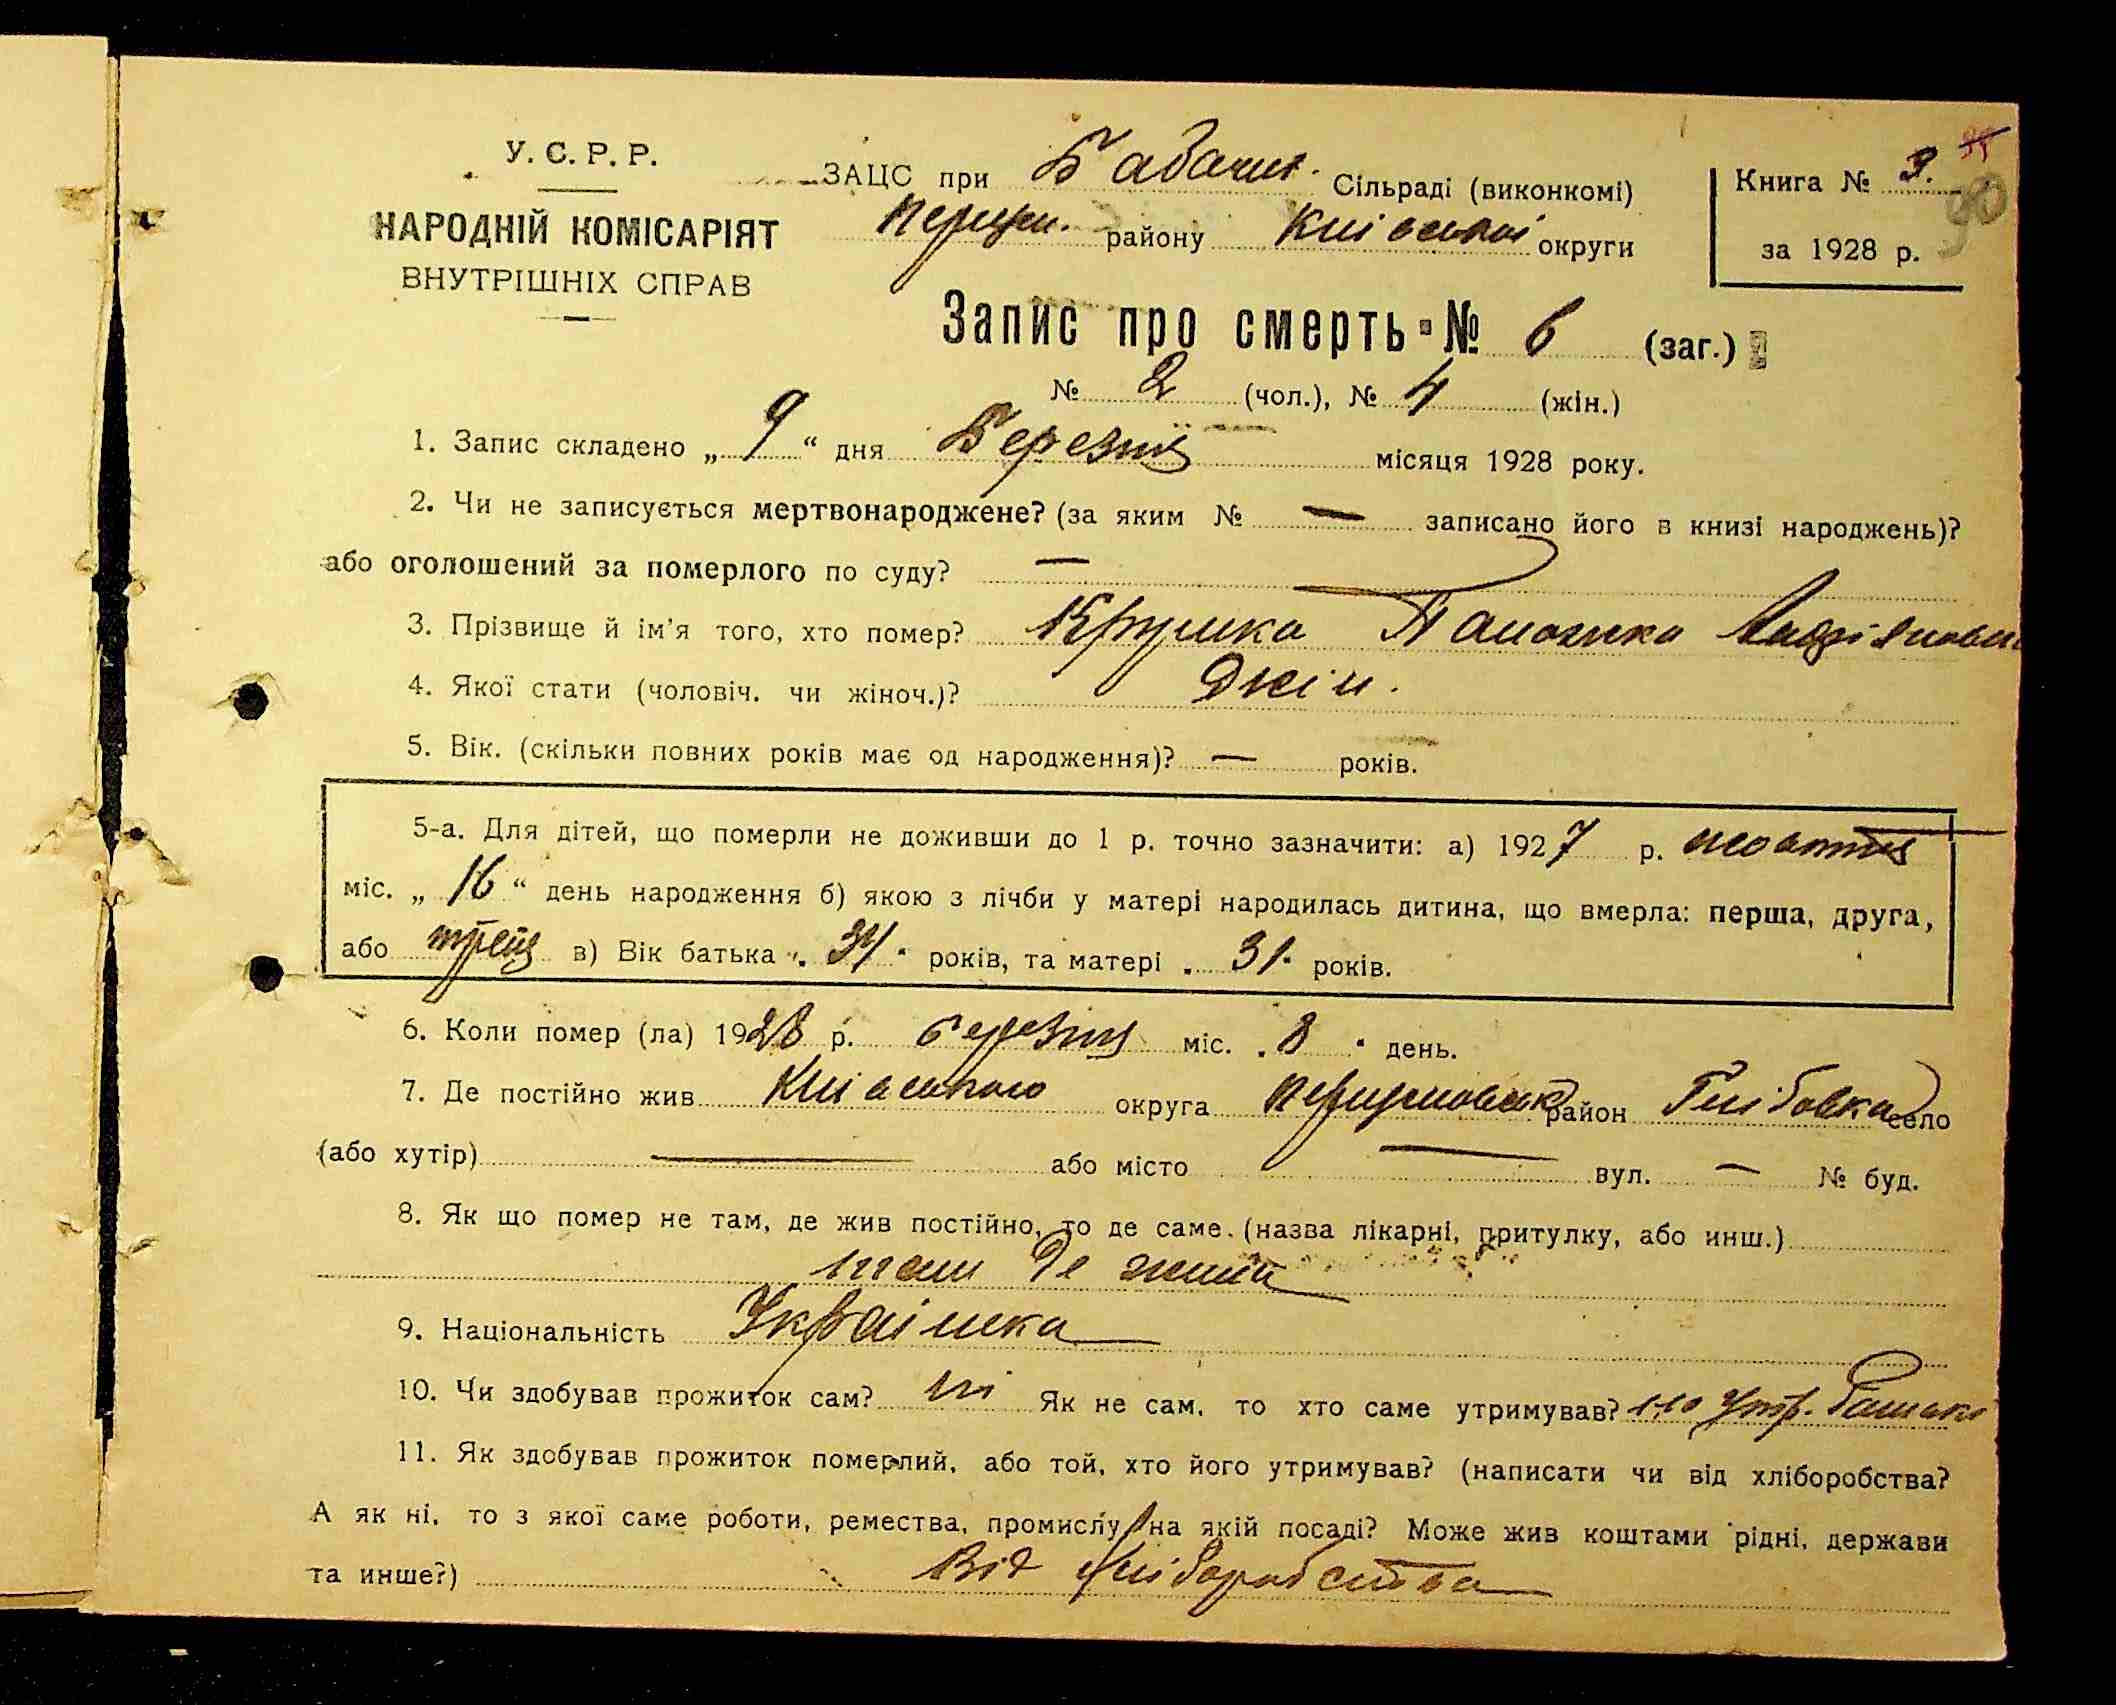 У. С. Р. Р.
НАРОДНІЙ КОМІСАРІЯТ
ВНУТРІШНІХ СПРАВ
ЗАЦС при Бабачин. Сільраді (виконкомі)
району Київської округи
Книга № 3.
за 1928 р.
90
Запис про смерть № 6 (заг.)
№ 2 (чол.), № 4 (жін.)
1. Запис складено „ 9 “ дня Березня місяця 1928 року.
2. Чи не записується мертвонароджене? (за яким № — записано його в книзі народжень)?
або оголошений за померлого по суду? —
3. Прізвище й ім’я того, хто помер?
4. Якої стати (чоловіч. чи жіноч.)? жін.
5. Вік. (скільки повних років має од народження)? — років.
5-а. Для дітей, що померли не доживши до 1 р. точно зазначити: а) 1927 р. жовтня
міс. „ 16 “ день народження б) якою з лічби у матері народилась дитина, що вмерла: перша, друга,
або в) Вік батька 34 років, та матері 31 років.
6. Коли помер (ла) 1928 р. березня міс. 8 день.
7. Де постійно жив Київського округа район Глібовка село
(або хутір) — або місто — вул. — № буд.
8. Як що помер не там, де жив постійно, то де саме. (назва лікарні, притулку, або инш.)
там де жила
9. Національність Українка
10. Чи здобував прожиток сам? ні Як не сам, то хто саме утримував?
11. Як здобував прожиток померлий, або той, хто його утримував? (написати чи від хліборобства?
А як ні, то з якої саме роботи, ремества, промислу, на якій посаді? Може жив коштами рідні, держави
та инше?) Від хліборобства